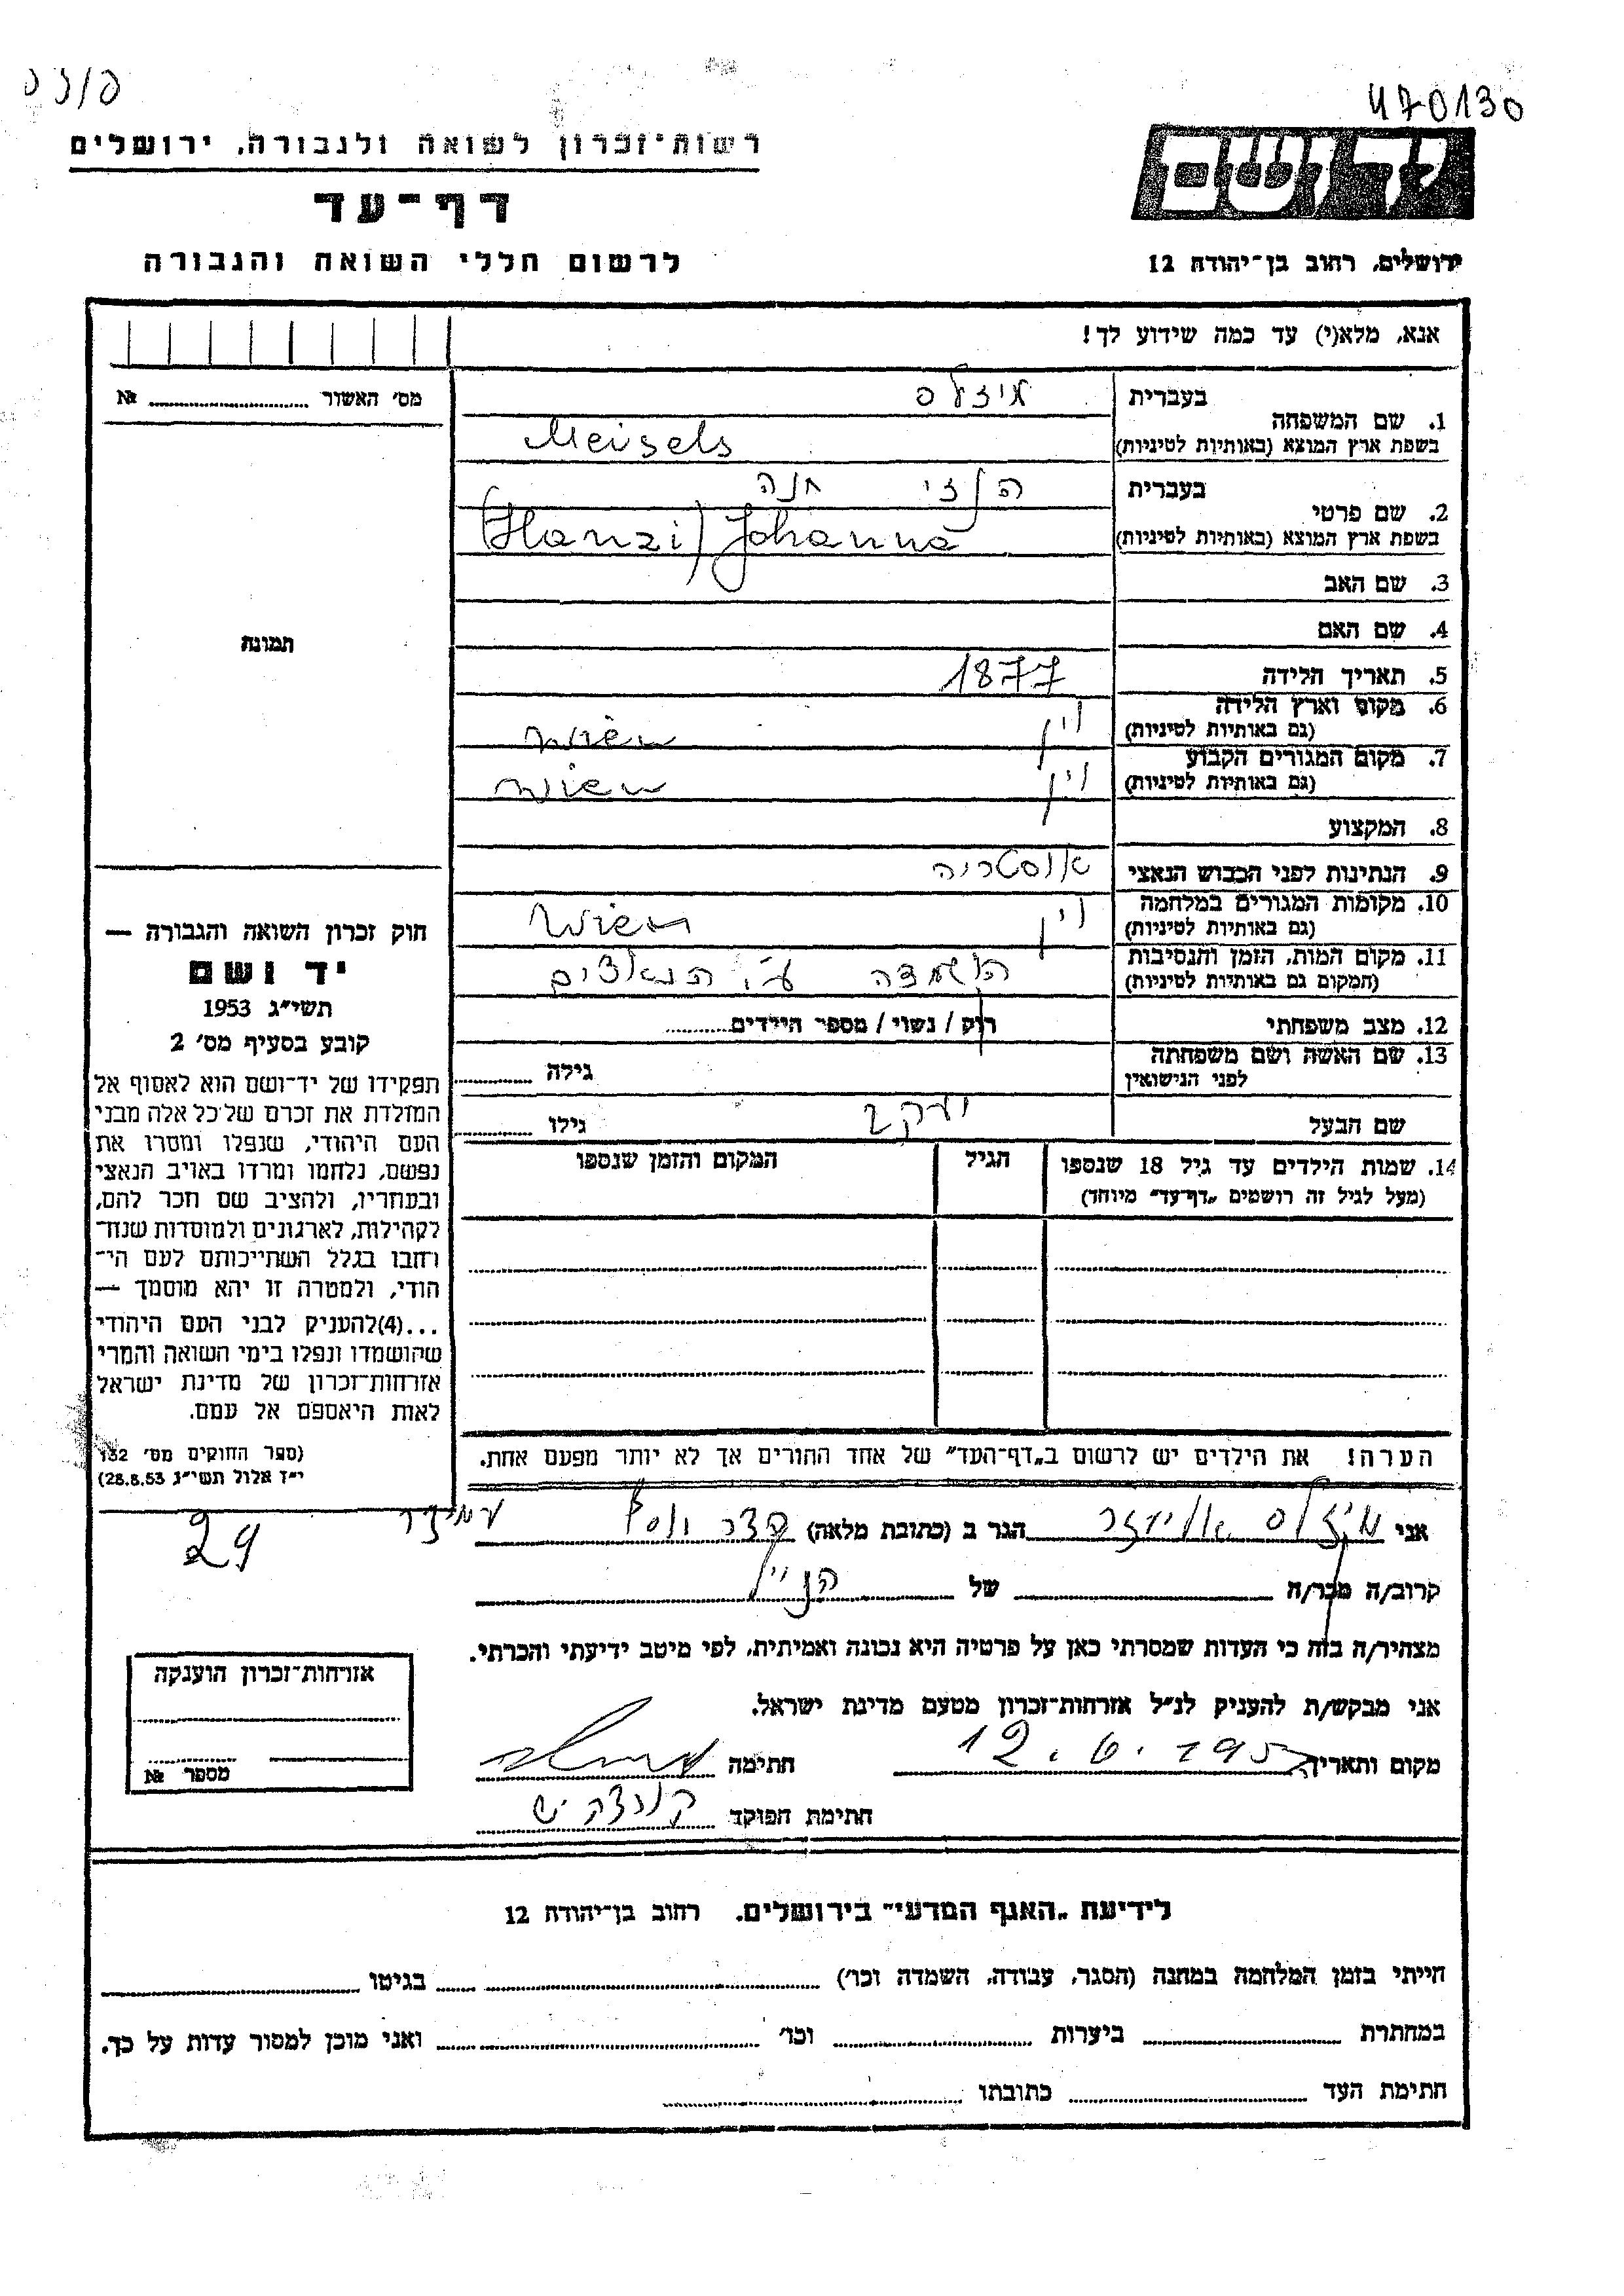 470130
רשות־זכרון לשואה ולגבורה, ירושלים
דף־עד
לרשום חללי השואה והגבורה
ירושלים, רחוב בן־יהודה 12
אנא, מלא(י) עד כמה שידוע לך!
מס׳ האשור № 
בעברית מיזלס
1. שם המשפחה
בשפת ארץ המוצא (באותיות לטיניות) Meisels
בעברית הנזי חנה
2. שם פרטי
בשפת ארץ המוצא (באותיות לטיניות) (Hanzi) Johanna
3. שם האב
4. שם האם
5. תאריך הלידה 1877
6. מקום וארץ הלידה
(גם באותיות לטיניות) וין Wien
7. מקום המגורים הקבוע
(גם באותיות לטיניות) וין Wien
8. המקצוע
9. הנתינות לפני הכבוש הנאצי אוסטריה
10. מקומות המגורים במלחמה
(גם באותיות לטיניות) וין Wien
11. מקום המות, הזמן והנסיבות
(המקום גם באותיות לטיניות) הושמדה ע״י הנאצים
12. מצב משפחתי רוק / נשוי / מספר הילדים
13. שם האשה ושם משפחתה
לפני הנישואין גילה
שם הבעל יעקב גילו
14. שמות הילדים עד גיל 18 שנספו
(מעל לגיל זה רושמים „דף־עד״ מיוחד)
הגיל
המקום והזמן שנספו
הערה! את הילדים יש לרשום ב„דף־העד״ של אחד ההורים אך לא יותר מפעם אחת.
תמונה
חוק זכרון השואה והגבורה —
יד ושם
תשי״ג 1953
קובע בסעיף מס׳ 2
תפקידו של יד־ושם הוא לאסוף אל
המולדת את זכרם של כל אלה מבני
העם היהודי, שנפלו ומסרו את
נפשם, נלחמו ומרדו באויב הנאצי
ובעוזריו, ולהציב שם וזכר להם,
לקהילות, לארגונים ולמוסדות שנח־
רחבו בגלל השתייכותם לעם הי־
הודי, ולמטרה זו יהא מוסמך —
...(4)להעניק לבני העם היהודי
שהושמדו ונפלו בימי השואה והמרי
אזרחות־זכרון של מדינת ישראל
לאות היאספם אל עמם.
(ספר החוקים מס׳ 132
י״ז אלול תשי״ג 28.8.53)
29
אני מיזלס אליעזר הגר ב (כתובת מלאה) עמידר
קרוב/ה מכר/ה של הנ״ל
מצהיר/ה בזה כי העדות שמסרתי כאן על פרטיה היא נכונה ואמיתית, לפי מיטב ידיעתי והכרתי.
אני מבקש/ת להעניק לנ״ל אזרחות־זכרון מטעם מדינת ישראל.
מקום ותאריך 12.6.195 חתימה
חתימת הפוקד
אזרחות־זכרון הוענקה
מספר №
לידיעת „האגף המדעי״ בירושלים, רחוב בן־יהודה 12
הייתי בזמן המלחמה במחנה (הסגר, עבודה, השמדה וכו׳) בגיטו
במחתרת ביערות וכו׳ ואני מוכן למסור עדות על כך.
חתימת העד כתובתו